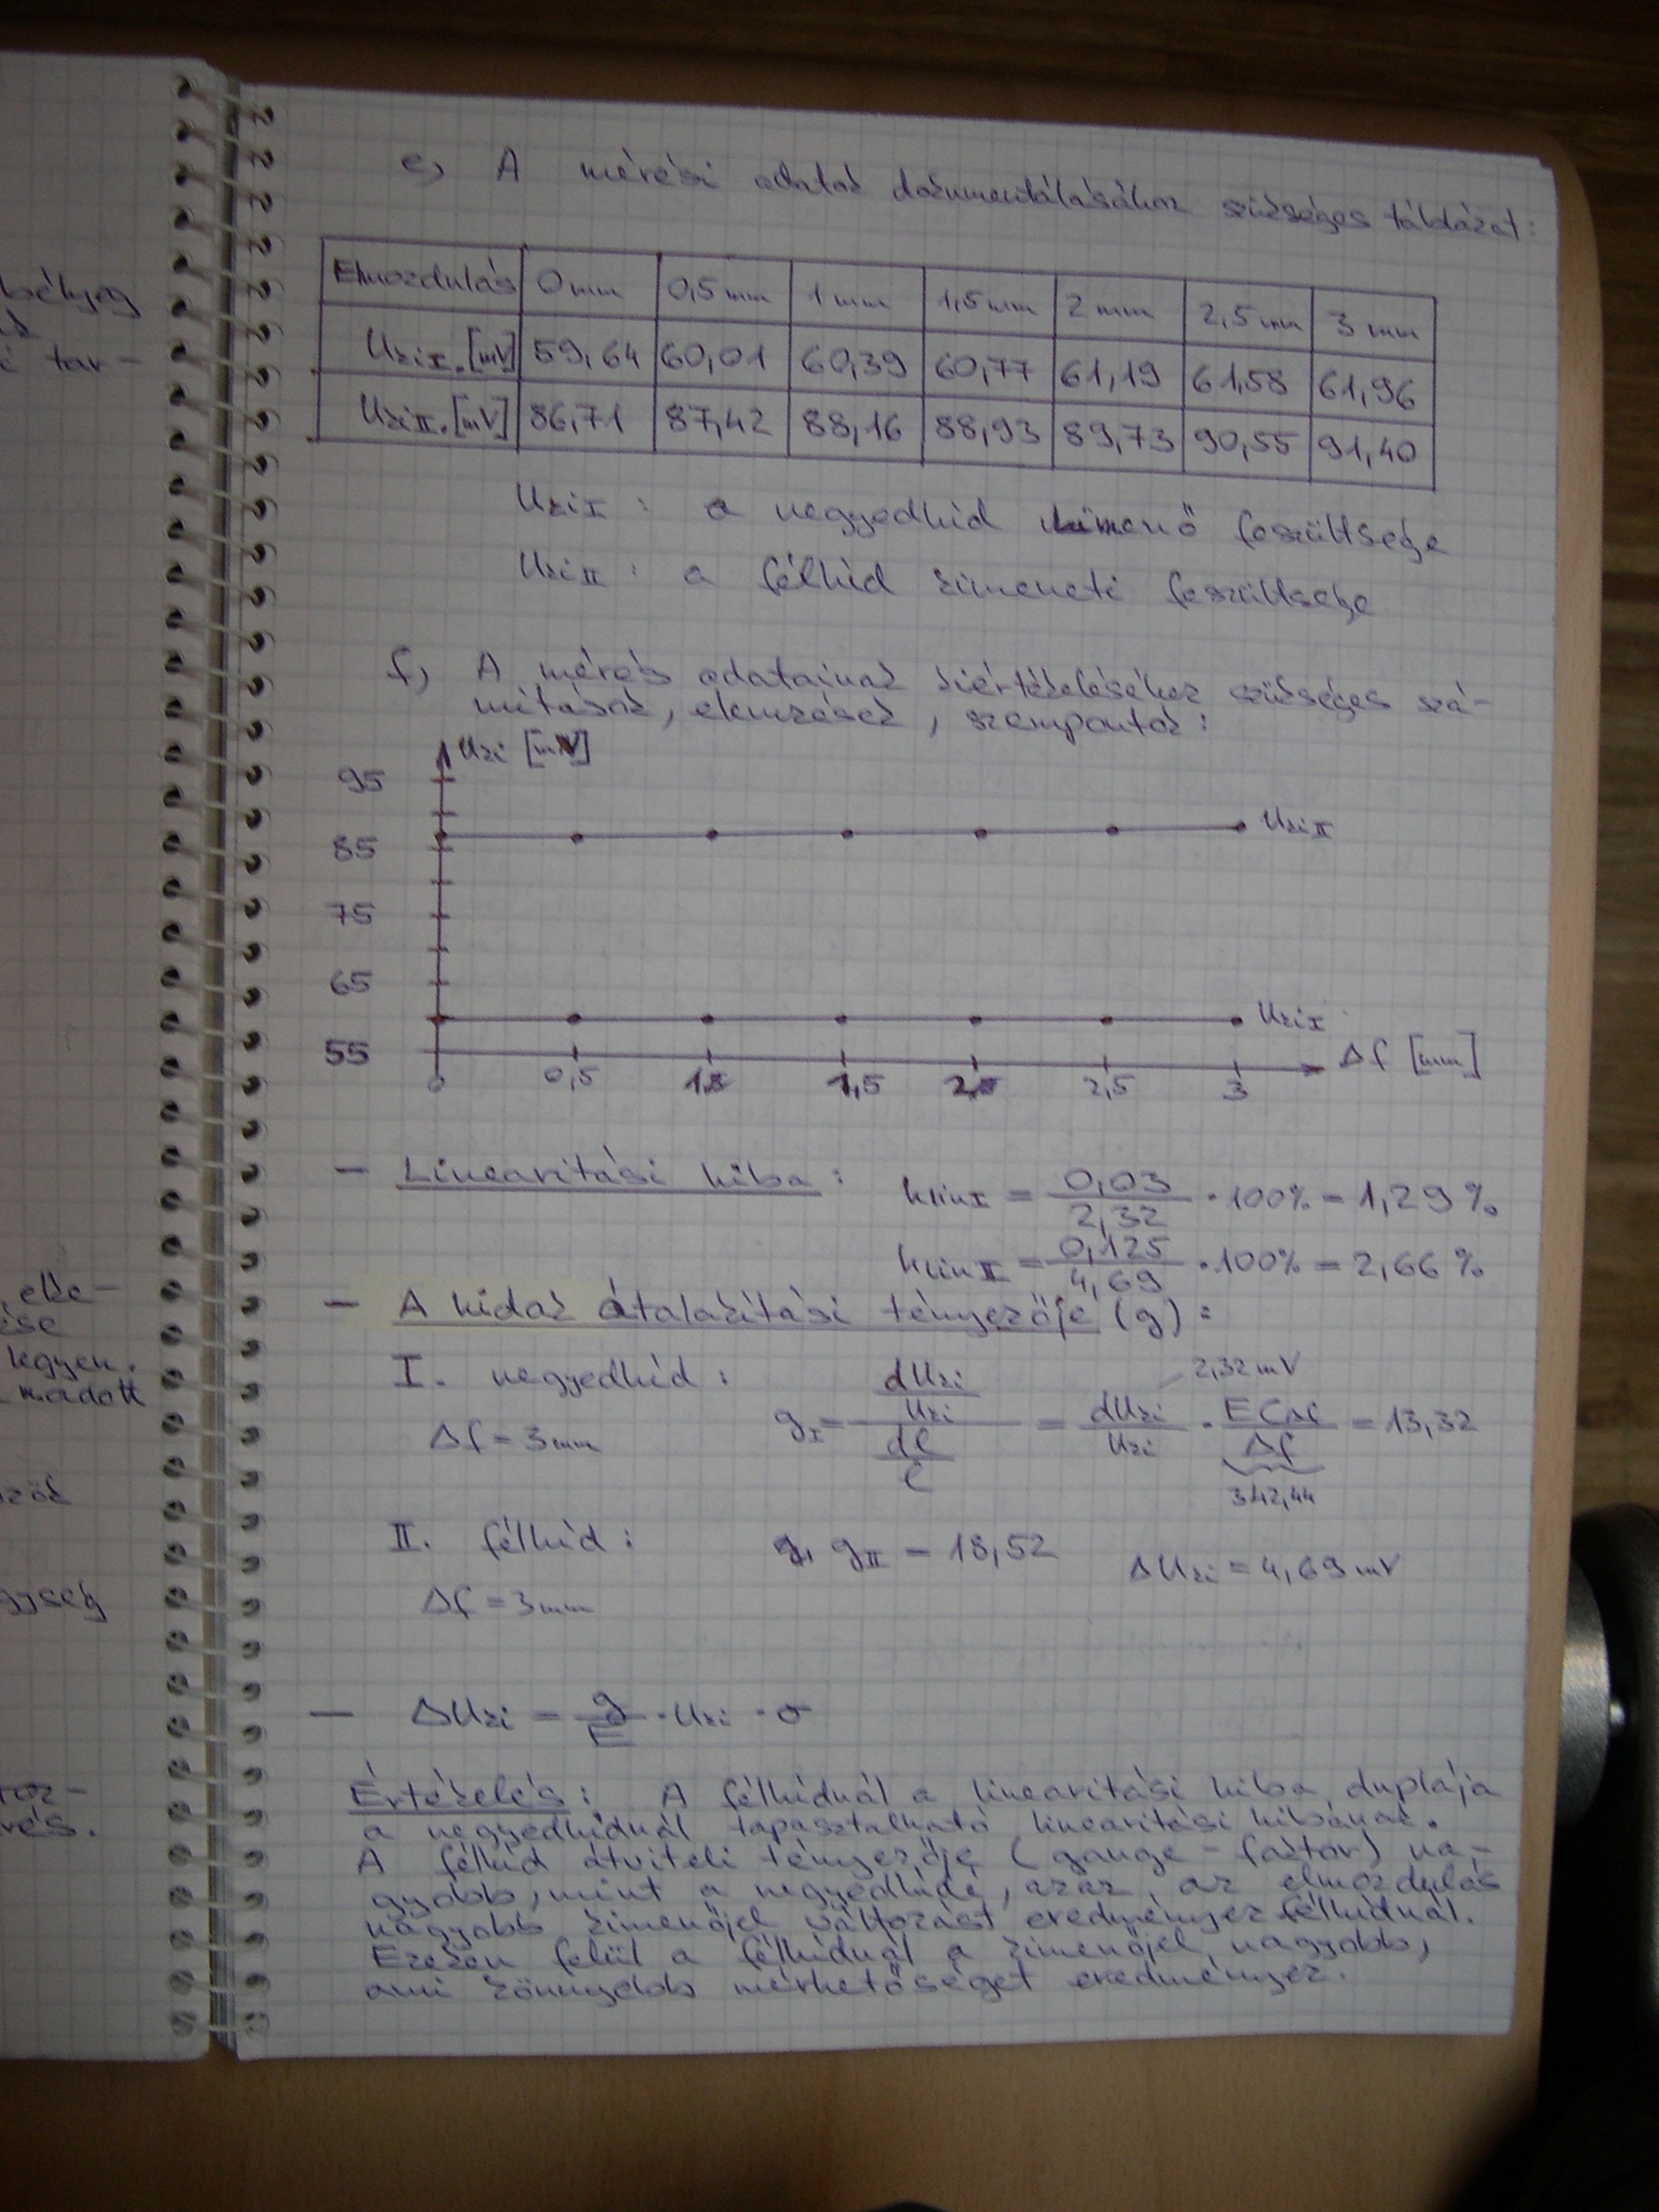 bélyeg
tar-
e, A mérési adatok dokumentálásához szükséges táblázat:
Elmozdulás 0 mm 0,5 mm 1 mm 1,5 mm 2 mm 2,5 mm 3 mm
UkiI. [mV] 59,64 60,01 60,39 60,77 61,19 61,58 61,96
UkiII. [mV] 86,71 87,42 88,16 88,93 89,73 90,55 91,40
UkiI : a negyedhíd kimenő feszültsége
UkiII : a félhíd kimeneti feszültsége
f, A mérés adatainak kiértékeléséhez szükséges szá-
mítások, elemzések, szempontok:
Uki [mV]
95
85
75
65
55
UkiII
UkiI
0 0,5 1,0 1,5 2,0 2,5 3
Δf [mm]
- Linearitási hiba: hlinI = 0,03 / 2,32 · 100% = 1,29 %
hlinII = 0,125 / 4,69 · 100% = 2,66 %
- A hidak átalakítási tényezője (g):
2,32 mV
I. negyedhíd: gI = dUki/Uki / dl/l = dUki/Uki · ECΔf/Δf = 13,32
Δf = 3mm
342,44
II. félhíd: gII = 18,52 ΔUki = 4,69 mV
Δf = 3mm
- ΔUki = g/E · Uki · σ
Értékelés: A félhídnál a linearitási hiba duplája
a negyedhídnál tapasztalható linearitási hibának.
A félhíd átviteli tényezője (gauge-faktor) na-
gyobb, mint a negyedhídé, azaz, az elmozdulás
nagyobb kimenőjel változást eredményez félhídnál.
Ezeken felül a félhídnál a kimenőjel nagyobb,
ami könnyebb mérhetőséget eredményez.
legyen.
egység